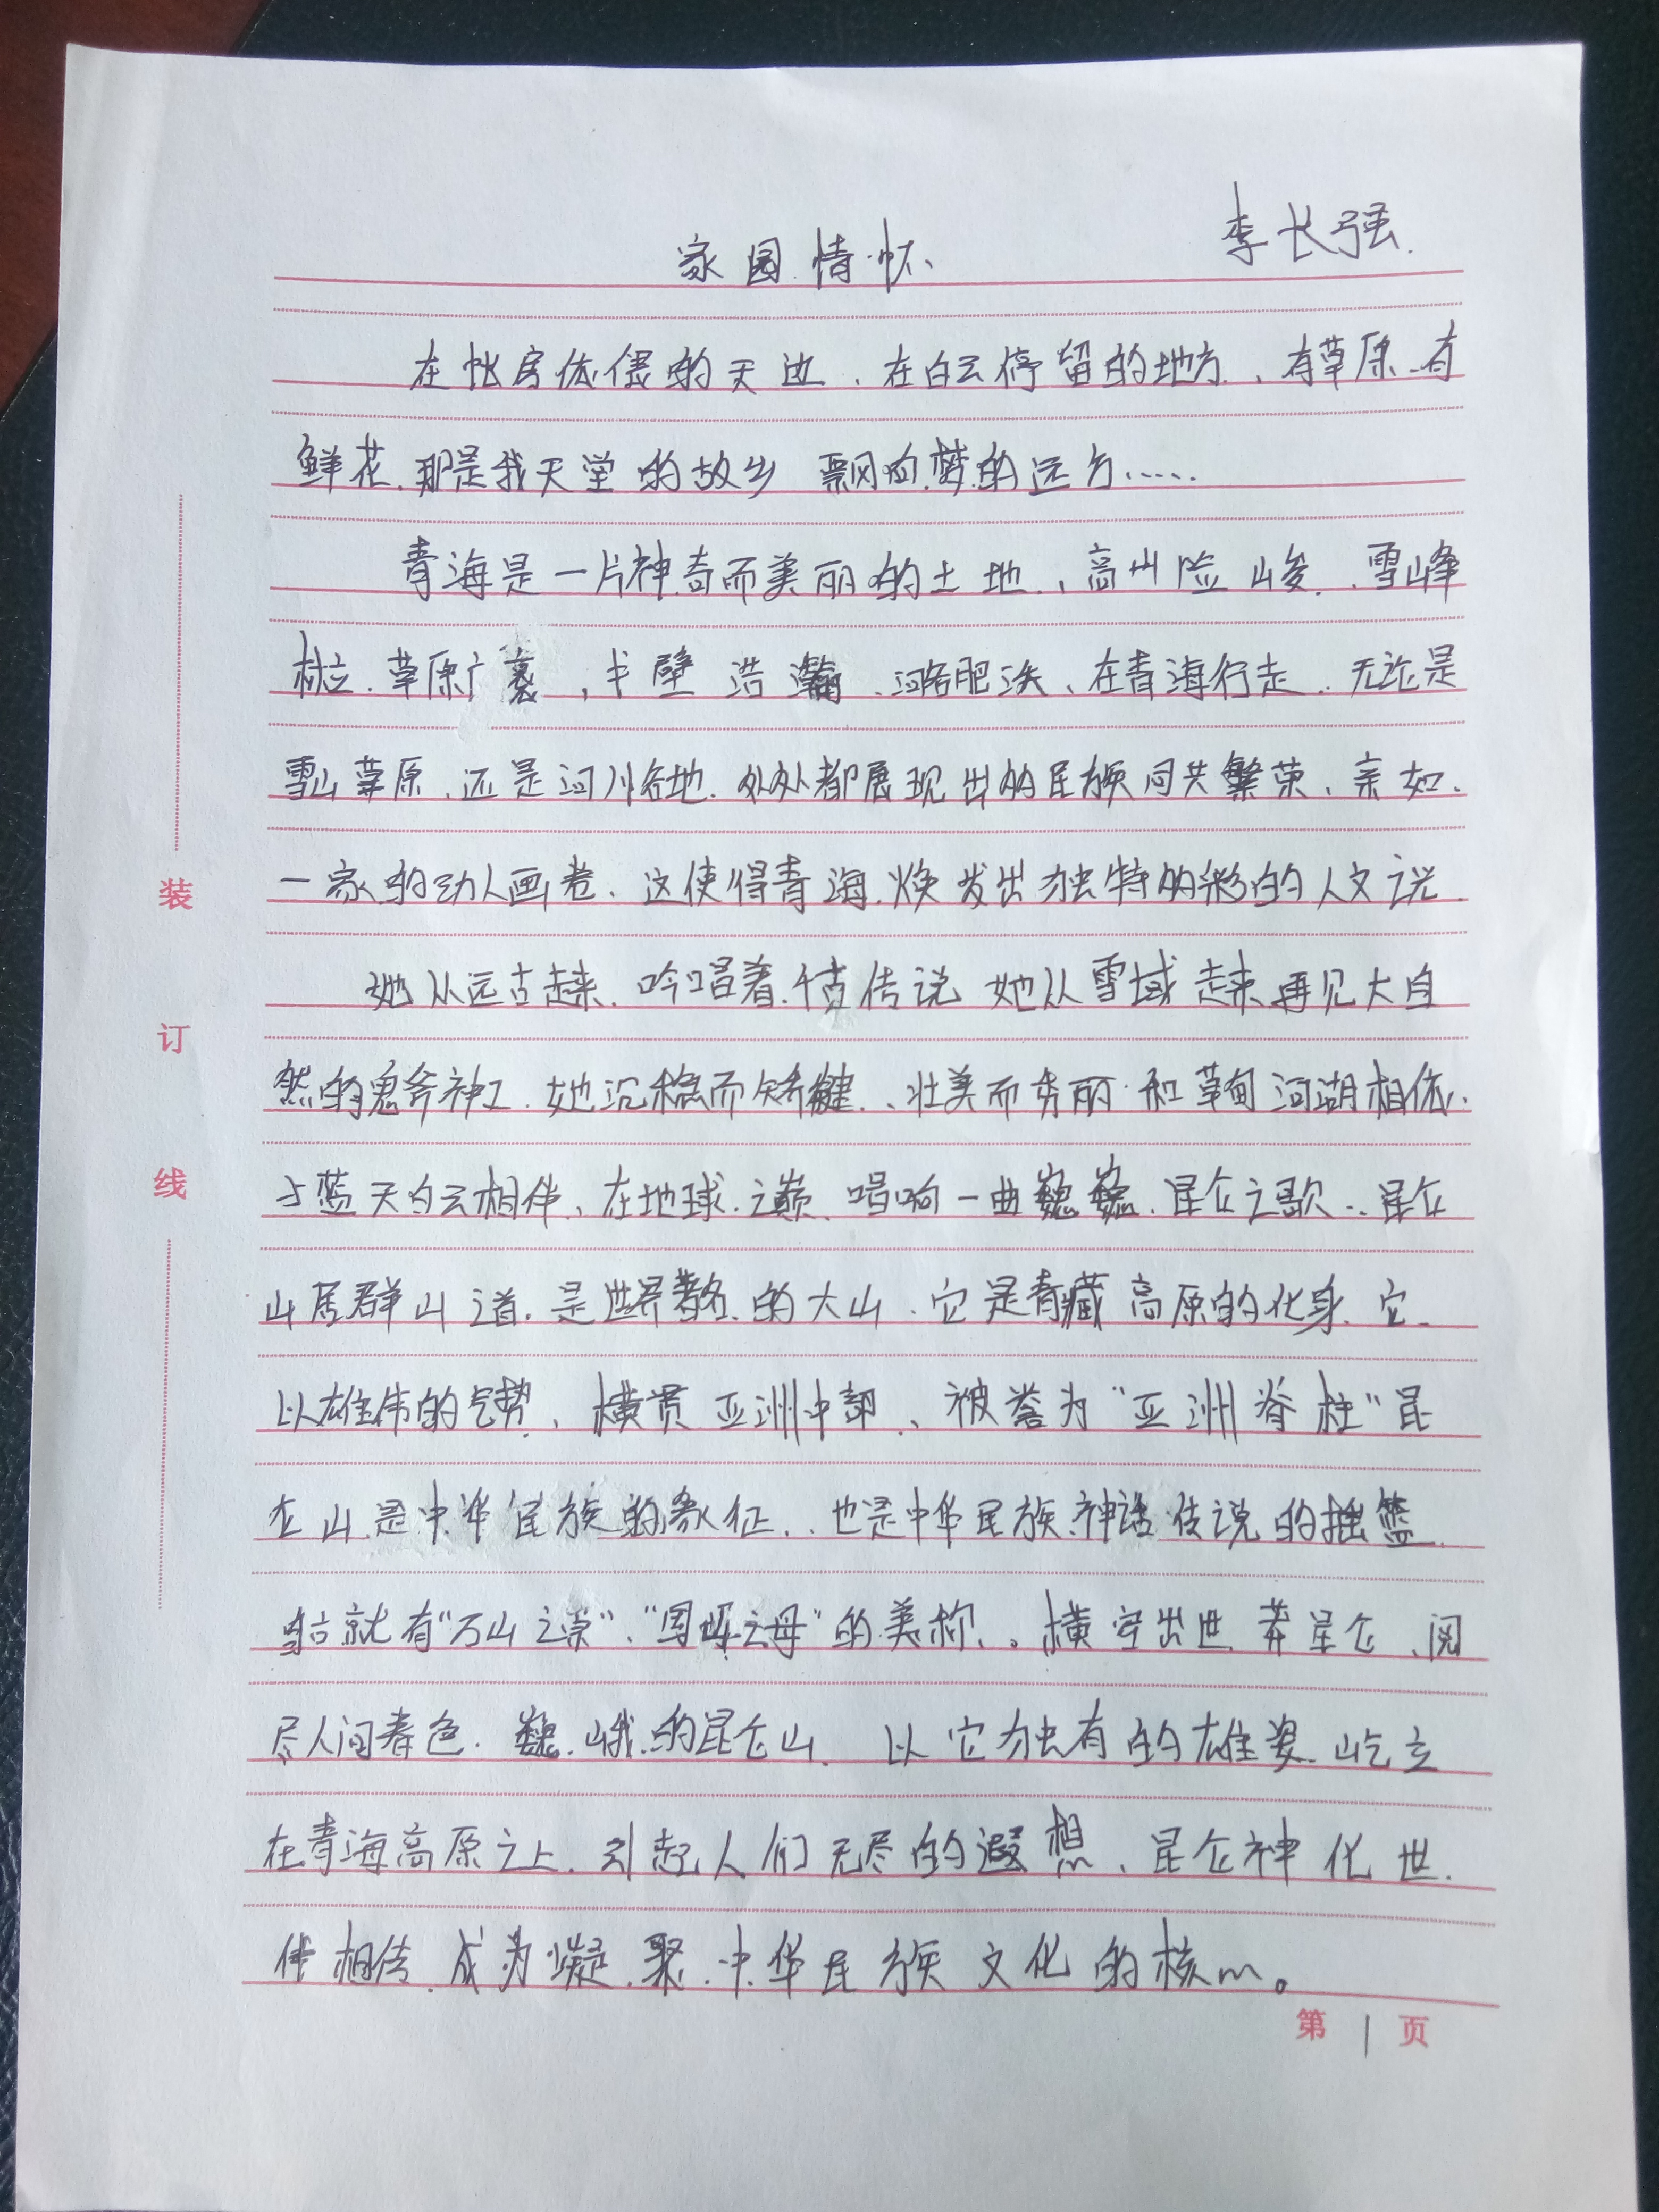 李长强.
家园情怀
在帐房依偎的天边、在白云停留的地方、有草原、有
鲜花、那是我天堂的故乡 飘向梦的远方……
青海是一片神奇而美丽的土地、高山险峻、雪峰
林立、草原广袤,戈壁浩瀚、河谷肥沃、在青海行走、无论是
雪山草原、还是河川谷地、处处都展现出的民族间共繁荣、亲如、
一家的动人画卷、这使得青海焕发出独特的彩的人文说
她从远古走来、吟唱着千古传说 她从雪域走来 再见大自
然的鬼斧神工、她沉稳而矫健、壮美而秀丽·和草甸河湖相依、
与蓝天白云相伴、在地球之巅、唱响一曲巍巍、昆仑之歌、昆仑
山居群山之首、是世界著名的大山、它是青藏高原的化身、它
以雄伟的气势、横贯亚洲中部、被誉为“亚洲脊柱”昆
仑山是中华民族的象征、也是中华民族神话传说的摇篮
就有“万山之宗”、“国母”的美称。横空出世 莽昆仑、阅
尽人间春色、巍峨的昆仑山、以它独有的雄姿、屹立
在青海高原之上、引起人们无尽的遐想、昆仑神化世
代相传、成为凝聚中华民族文化的核心。
装
订
线
第1页